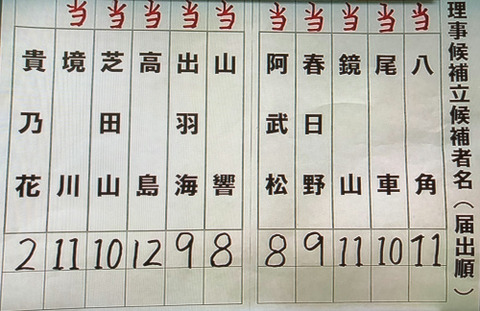 理事候補立候補者名（届出順）
当 八角 11
当 尾車 10
当 鏡山 11
当 春日野 9
当 阿武松 8
当 山響 8
当 出羽海 9
当 高島 12
当 芝田山 10
当 境川 11
貴乃花 2